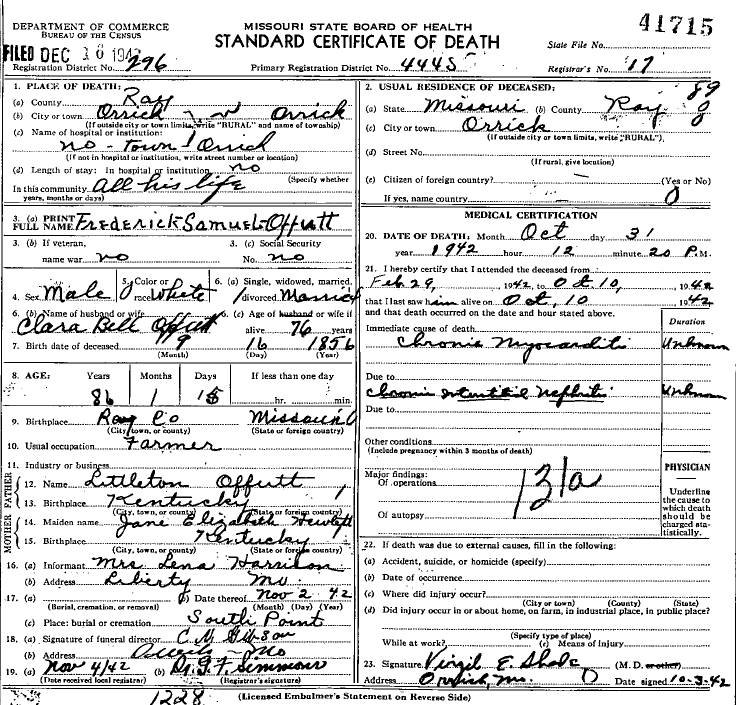 DEPARTMENT OF COMMERCE
BUREAU OF THE CENSUS
MISSOURI STATE BOARD OF HEALTH
STANDARD CERTIFICATE OF DEATH
41715
State File No.
FILED DEC 16 194
Registration District No. 296
Primary Registration District No. 4445
Registrar's No. 17
1. PLACE OF DEATH:
(a) County Ray
(b) City or town Orrick Orrick
(If outside city or town limits, write "RURAL" and name of township)
(c) Name of hospital or institution:
no - Town Orrick
(If not in hospital or institution, write street number or location)
(d) Length of stay: In hospital or institution no
(Specify whether
In this community All his life
years, months or days)
2. USUAL RESIDENCE OF DECEASED: 89
(a) State Missouri (b) County Ray 0
(c) City or town Orrick 0
(If outside city or town limits, write "RURAL")
(d) Street No.
(If rural, give location)
(e) Citizen of foreign country? — (Yes or No)
If yes, name country — 0
3. (a) PRINT FULL NAME Frederick Samuel Offutt
3. (b) If veteran, name war no
3. (c) Social Security No. no
4. Sex Male
5. Color or race White
6. (a) Single, widowed, married, divorced Married
6. (b) Name of husband or wife Clara Bell Offutt
6. (c) Age of husband or wife if alive 76 years
7. Birth date of deceased 9 16 1856
(Month) (Day) (Year)
8. AGE: Years Months Days If less than one day
86 1 15 hr. min.
9. Birthplace Ray Co Missouri 0
(City, town, or county) (State or foreign country)
10. Usual occupation Farmer
11. Industry or business
FATHER
12. Name Littleton Offutt
13. Birthplace Kentucky
(City, town, or county) (State or foreign country)
MOTHER
14. Maiden name Jane Elizabeth
15. Birthplace Kentucky
(City, town, or county) (State or foreign country)
16. (a) Informant Mrs Lena Harrison
(b) Address Liberty Mo.
17. (a) (b) Date thereof Nov 2 42
(Burial, cremation, or removal) (Month) (Day) (Year)
(c) Place: burial or cremation South Point
18. (a) Signature of funeral director C. M. Gibson
(b) Address Mo
19. (a) Nov 4/42 (b) Dr. G. F. Simmons
(Date received local registrar) (Registrar's signature)
MEDICAL CERTIFICATION
20. DATE OF DEATH: Month Oct day 31
year 1942 hour 12 minute 20 P.M.
21. I hereby certify that I attended the deceased from
Feb 29, 1942, to Oct 10, 1942
that I last saw him alive on Oct, 10 1942
and that death occurred on the date and hour stated above.
Duration
Immediate cause of death
Chronic Myocarditis Unknown
Due to
Chronic Interstitial Nephritis Unknown
Due to
Other conditions
(Include pregnancy within 3 months of death)
Major findings:
Of operations
131a
Of autopsy
PHYSICIAN
Underline the cause to which death should be charged statistically.
22. If death was due to external causes, fill in the following:
(a) Accident, suicide, or homicide (specify)
(b) Date of occurrence
(c) Where did injury occur?
(City or town) (County) (State)
(d) Did injury occur in or about home, on farm, in industrial place, in public place?
(Specify type of place)
While at work? (e) Means of Injury
23. Signature Virgil E. (M. D. or other)
Address Orrick, Mo. Date signed 10-3-42
1228
(Licensed Embalmer's Statement on Reverse Side)